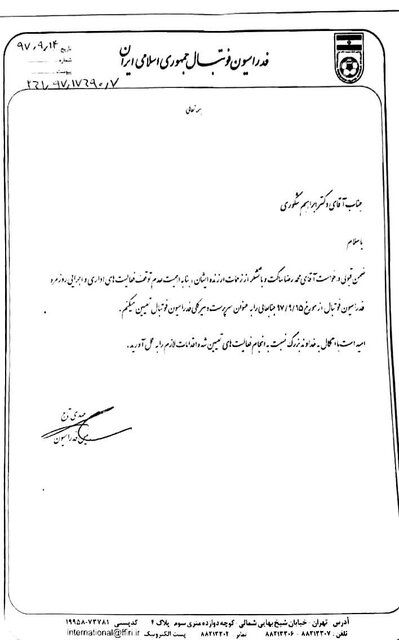 فدراسیون فوتبال جمهوری اسلامی ایران
تاریخ ۹۷،۹،۱۴
شماره
پیوست
بسمه تعالی
جناب آقای دکتر ابراهیم شکوری
با سلام
ضمن قبولی درخواست آقای محمد رضا ساکت و با تشکر از زحمات ارزنده ایشان، بنا به اهمیت عدم توقف فعالیت های اداری و اجرایی روزمره
فدراسیون فوتبال از مورخ ۹۷/۹/۱۵ جنابعالی را به عنوان سرپرست دبیر کلی فدراسیون فوتبال تعیین میکنم.
امید است با اتکال به خداوند بزرگ نسبت به انجام فعالیت های تعیین شده اقدامات لازم را به عمل آورید.
مهدی تاج
رئیس فدراسیون
آدرس تهران - خیابان شیخ بهایی شمالی کوچه دوازده متری سوم پلاک ۴ کدپستی ۷۳۷۸۱-۱۹۹۵۸
تلفن ۷-۸۸۲۱۳۳۰۶ نمابر ۸۸۲۱۳۳۰۲ پست الکترونیک international@ffiri.ir